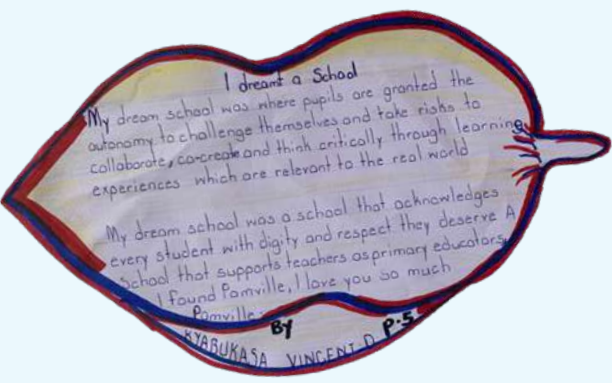 I dreamt a School
My dream school was where pupils are granted the
autonomy to challenge themselves and take risks to
collaborate, co-create and think critically through learning
experiences which are relevant to the real world
My dream school was a school that acknowledges
every student with digity and respect they deserve A
School that supports teachers as primary educators,
I found Pomville, I love you so much
Pomville.
By
KYABUKASA VINCENT D P.5